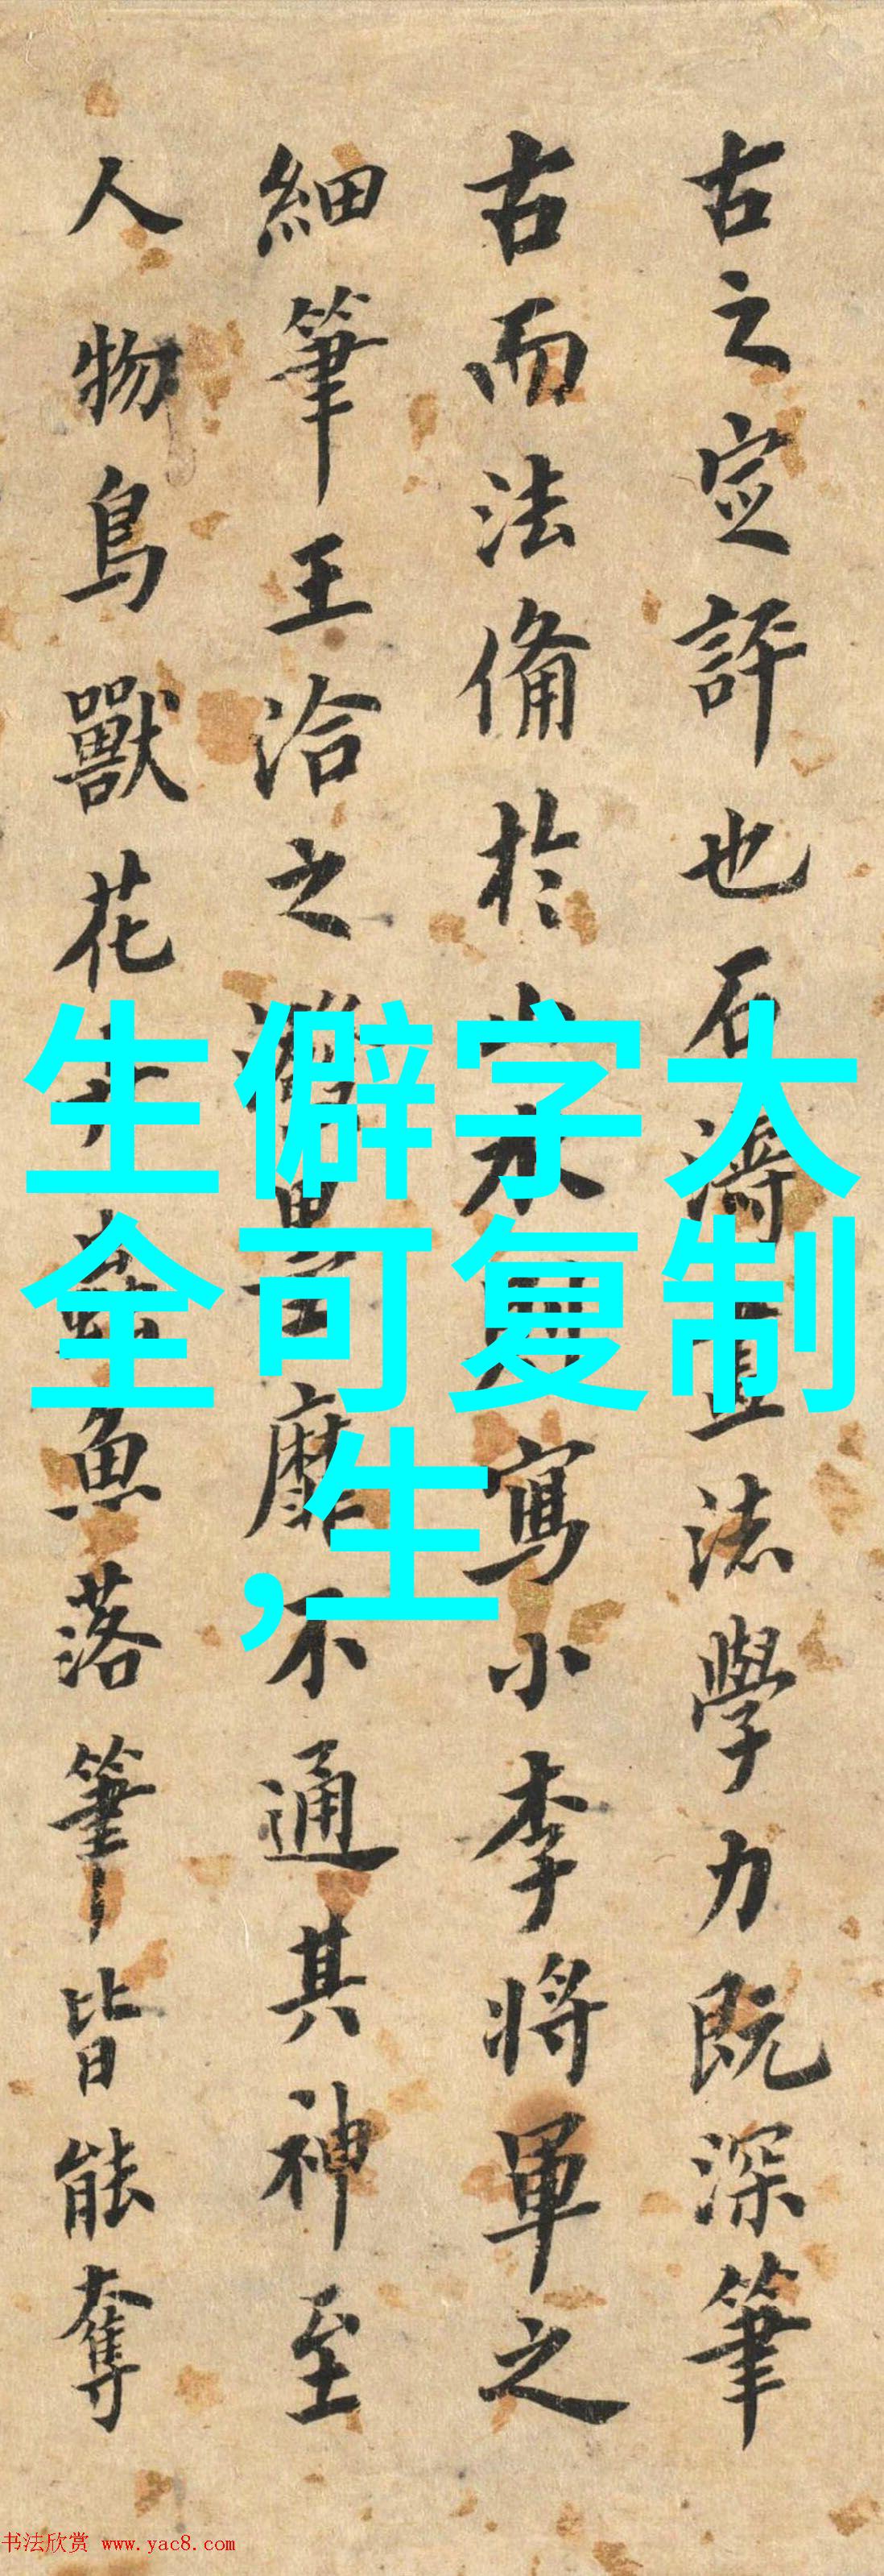 古之定評也石濤直法學力既深筆
古而法備於山水則寫小李將軍之
細筆王洽之潑墨靡不通其神至
人物鳥獸花卉蟲魚落筆皆能奪
生僻字大
全可复制
,生
书法欣赏 www.yac8.com